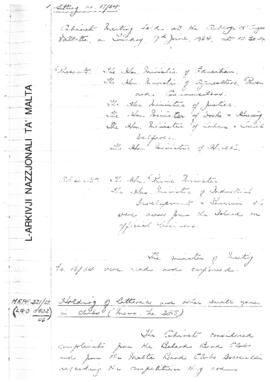 Sitting no. 17/64
Cabinet Meeting held at the Auberge
Valletta, on June, 1964, at 10.30
Present: The Hon. Minister of Education.
The Hon. Minister of Agriculture, Power
and Communications.
The Hon. Minister of Justice.
The Hon. Minister of Works & Housing.
The Hon. Minister of Labour & Social
Welfare.
The Hon. Minister of Health.
Absent: The Hon. Prime Minister
The Hon. Minister of Industrial
Development & Tourism
were away from the Island on
official business.
The minutes of Meeting
No. 16/64 were read and confirmed.
Holding of Lotteries and other small games
in clubs (Memo. No.
The Cabinet considered
complaints from the Band Clubs
and from the Malta Band Clubs Association
regarding the competition
L-ARKIVJI NAZZJONALI TA' MALTA